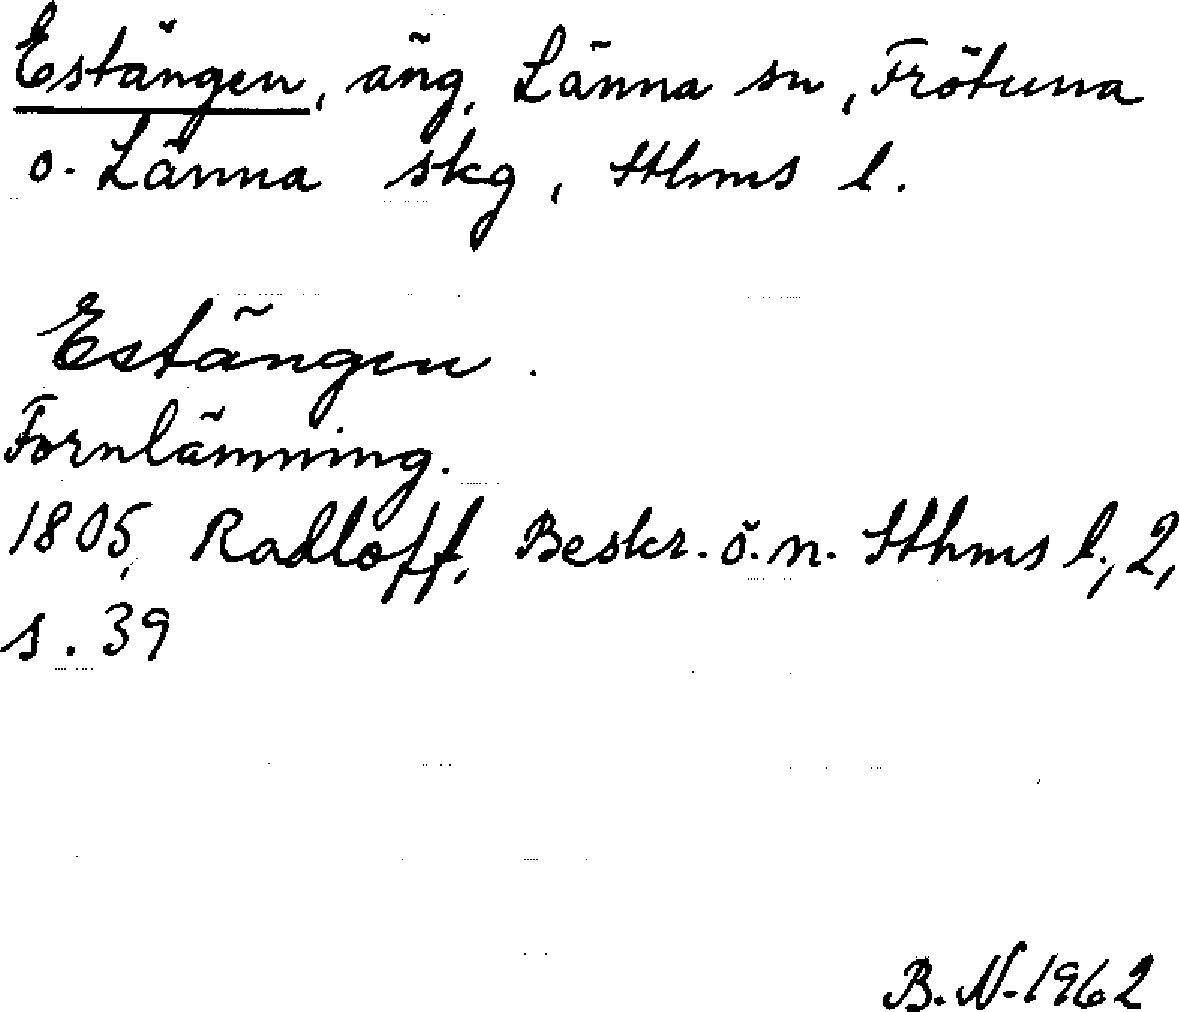 Estängen, äng, Länna sn, Frötuna
o. Länna skg, Sthms l.
Estängen.
Fornlämning.
1805, Radloff, Beskr. ö. n. Sthms l., 2,
s. 39
B. N. 1962